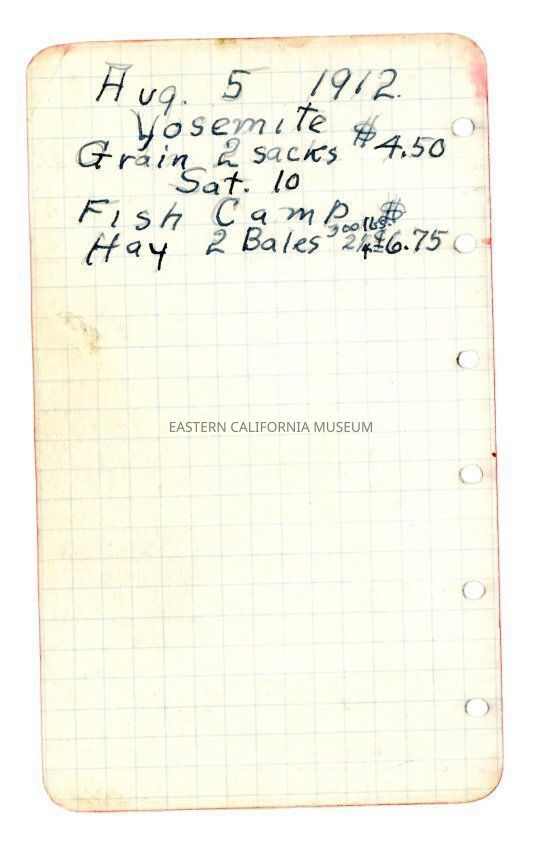 Aug. 5 1912.
Yosemite
Grain 2 sacks $4.50
Sat. 10
Fish Camp $
Hay 2 Bales 300 lbs. 6.75
EASTERN CALIFORNIA MUSEUM